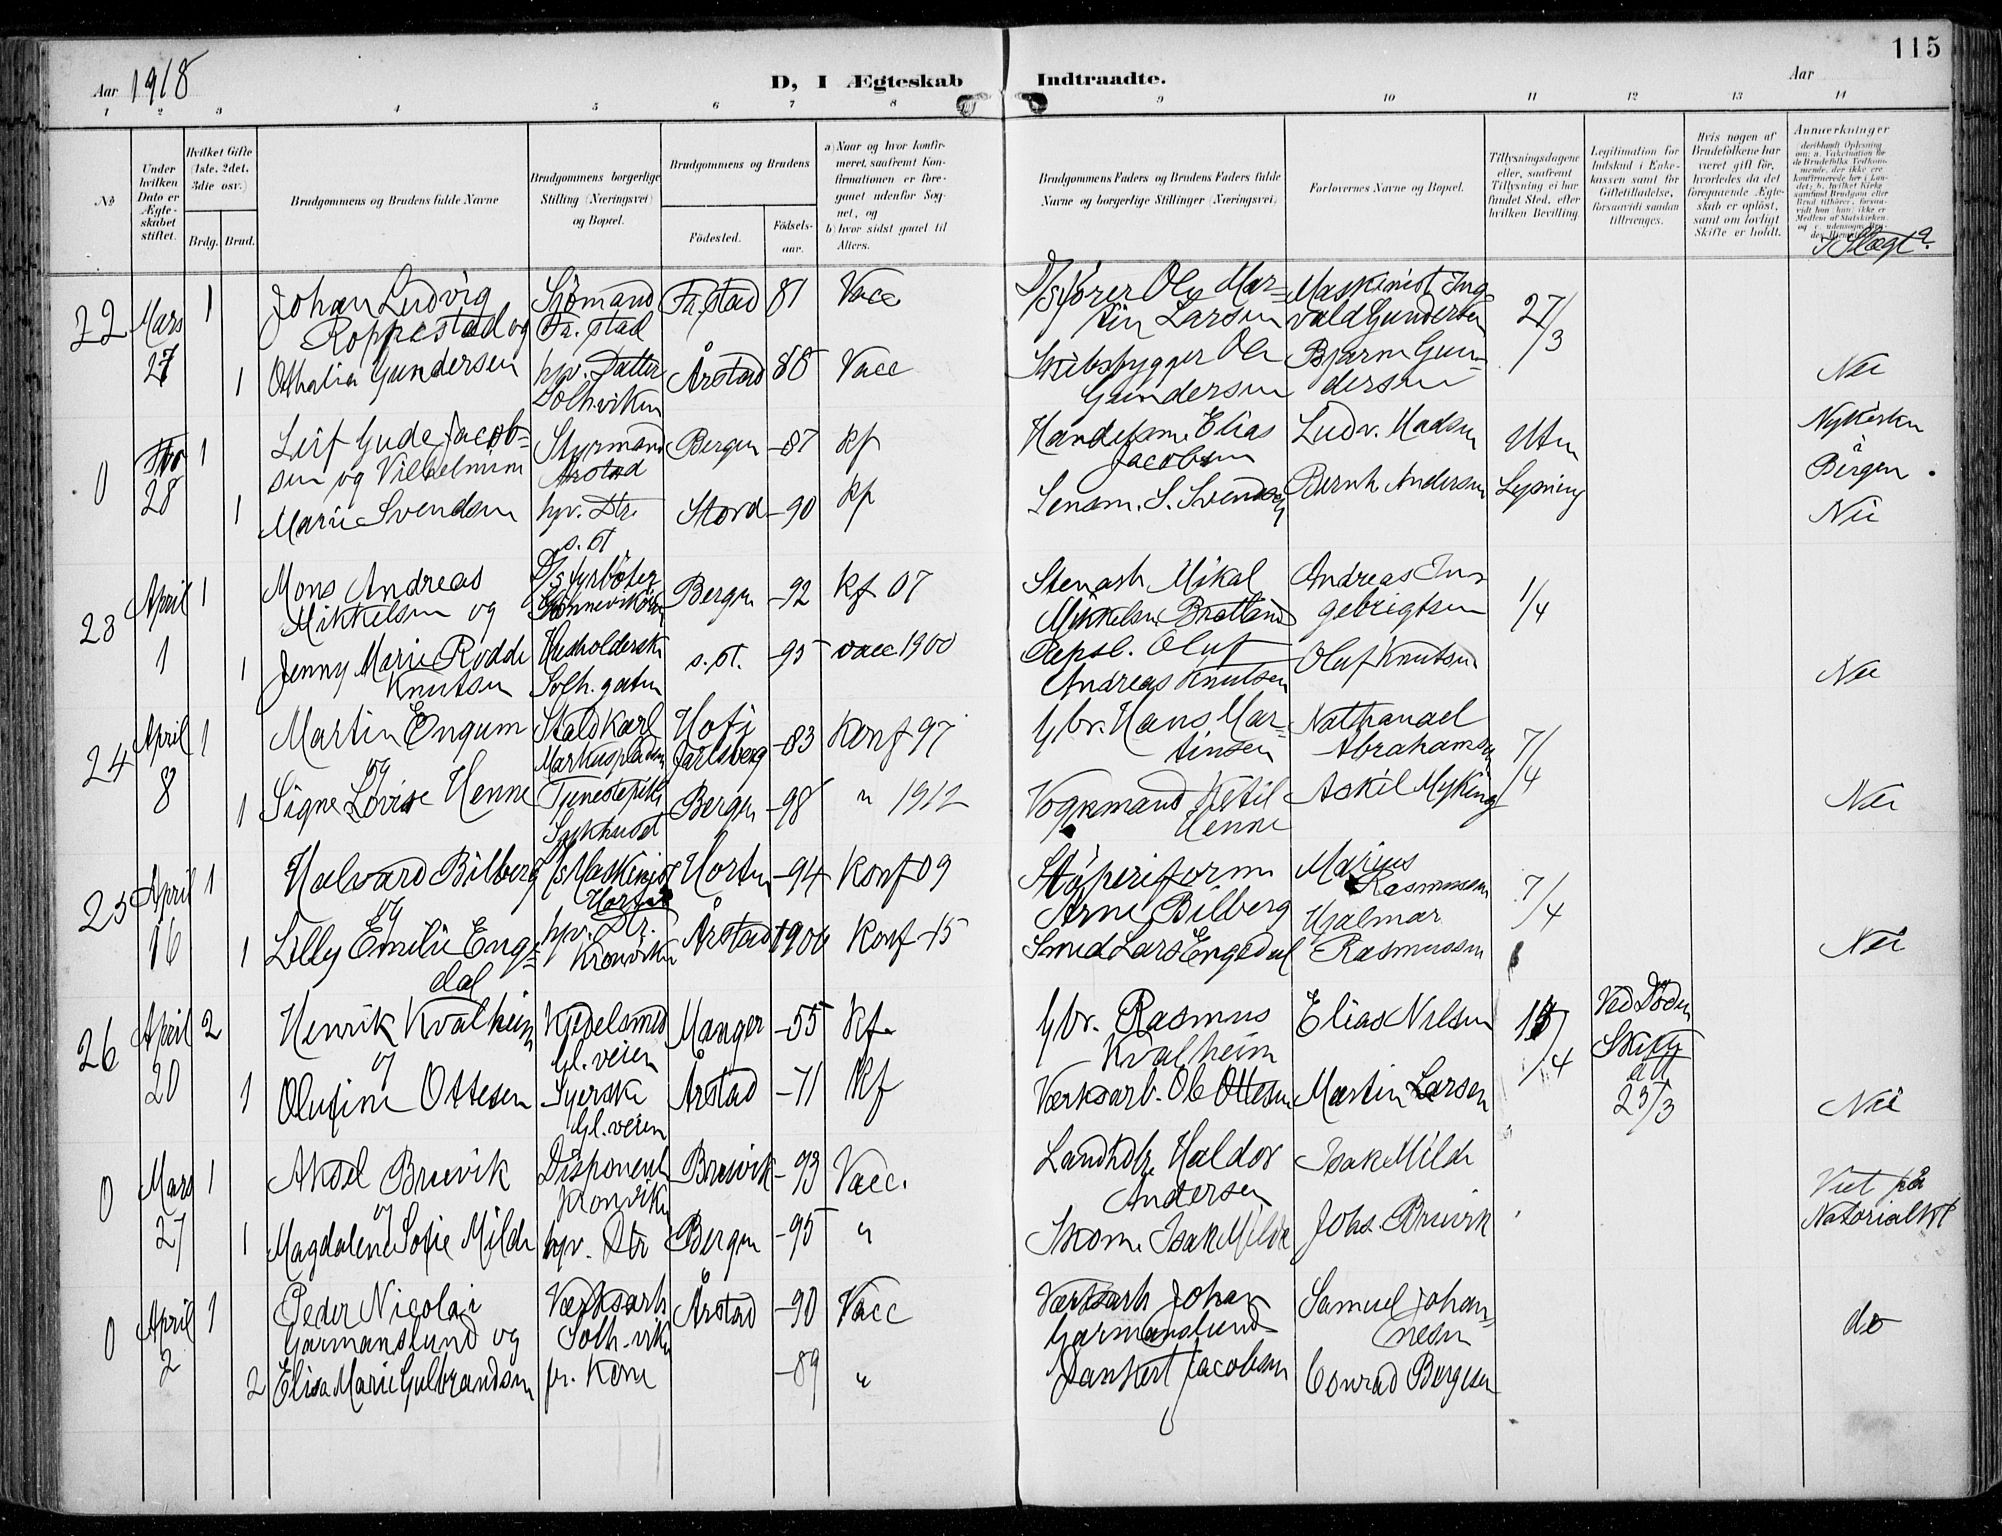 115
Aar 1918
D, I Ægteskab Indtraadte.
Aar
1 2 3 4 5 6 7 8 9 10 11 12 13 14
No
Under hvilken Dato er Ægteskabet stiftet.
Hvilket Gifte (1ste, 2det, 3die osv.)
Brdg. Brud.
Brudgommens og Brudens fulde Navne
Brudgommens borgerlige Stilling (Næringsvei) og Bopæl.
Brudgommens og Brudens
Fødested. Fødselsaar.
a) Naar og hvor konfirmeret, saafremt Konfirmationen er foregaaet udenfor Sognet, og
b) hvor sidst gaaet til Alters.
Brudgommens Faders og Brudens Faders fulde Navne og borgerlige Stillinger (Næringsvei)
Forlovernes Navne og Bopæl.
Tillysningsdagene eller, saafremt Tillysning ei har fundet Sted, efter hvilken Bevilling.
Legitimation for Indskud i Enkekassen samt for Giftetilladelse, forsaavidt saadan tiltrænges.
Hvis nogen af Brudefolkene har været gift før, hvorledes da det foregaaende Ægteskab er opløst, samt om lovligt Skifte er holdt.
Anmerkninger
Slægt?
22 Mars 27 1 Johan Ludvig Sjømand Fr.stad 81 Vacc D/s fører Ole Mar= Maskinist Ing= 27/3
Roppestad og Fr. stad tin Larsen vald Gundersen
1 Othalia Gundersen hpv. Datter Årstad 88 Vacc Skibsbygger Ole Bjarne Gun= Nei
Solhviken Gundersen dersen
0 28 1 Leif Gude Jacob= Styrmand Bergen -87 kf Handelsm. Elias Ludv. Madsen Uten Nykirken
sen og Vilhelmine Årstad Jacobsen Bergen.
1 Marie Svendsen hpv. Dtr. Stord -90 kf Lensm. S. Svendsen Bernh Andersen Lysning Nei
s. st
23 April 1 1 Mons Andreas D/s fyrbøter Bergen -92 kf 07 Stenarb Mikal Andreas In= 1/4
Mikkelsen og Mikkelsen Bratland gebrigtsen
1 Jenny Marie Rodde Husholderske s. st. -95 vacc 1900 Repsl. Oluf Oluf Knutsen Nei
Knutsen Solh. gaten Andreas Knutsen
24 April 8 1 Martin Engum Staldkarl Hof i -83 Konf 97 Gbr. Hans Mar= Nathanael 7/4
og Markuspladsen Jarlsberg tinsen Abrahamsen
1 Signe Lovise Henne Tjenestepike Bergen -98 " 1912 Vognmand Ketil Askil Myking Nei
Sykhuset Henne
25 April 16 1 Halvard Bilberg D/s Maskinist Horten -94 Konf 09 Støperiform Marius Rasmussen 7/4
og Horten Arne Bilberg Hjalmar
1 Lilly Emilie Enge= hpv. Dr. Årstad 1900 Konf -15 Smed Lars Engedal Rasmussen Nei
dal Kronviken
26 April 20 2 Henrik Kvalheim Kjedelsmed Manger -55 Kf. Gbr. Rasmus Elias Nilsen 1/4 Ved Døden
og Gl. veien Kvalheim Skifte
1 Olufine Ottesen Syerske Årstad -71 Kf Værksarb. Ole Ottesen Martin Larsen att 23/3 Nei
Gl. veien
0 Mars 27 1 Aksel Bruvik Disponent Bruvik -93 Vacc. Landhdlr. Haldor Isak Milde Viet på
og Kronviken Andersen Notorialkt
1 Magdalene Sofie Milde hpv. Dtr Bergen -95 " Skom. Isak Milde Johs. Bruvik
0 April 2 1 Peder Nicolai Værksarb Årstad -90 Vacc Værksarb Johan Samuel Johan= do
Garmanslund og Solh. viken Garmanslund nesen
2 Elisa Marie Gulbrandsen fr. Kone -89 " Dankert Jacobsen Conrad Bergesen